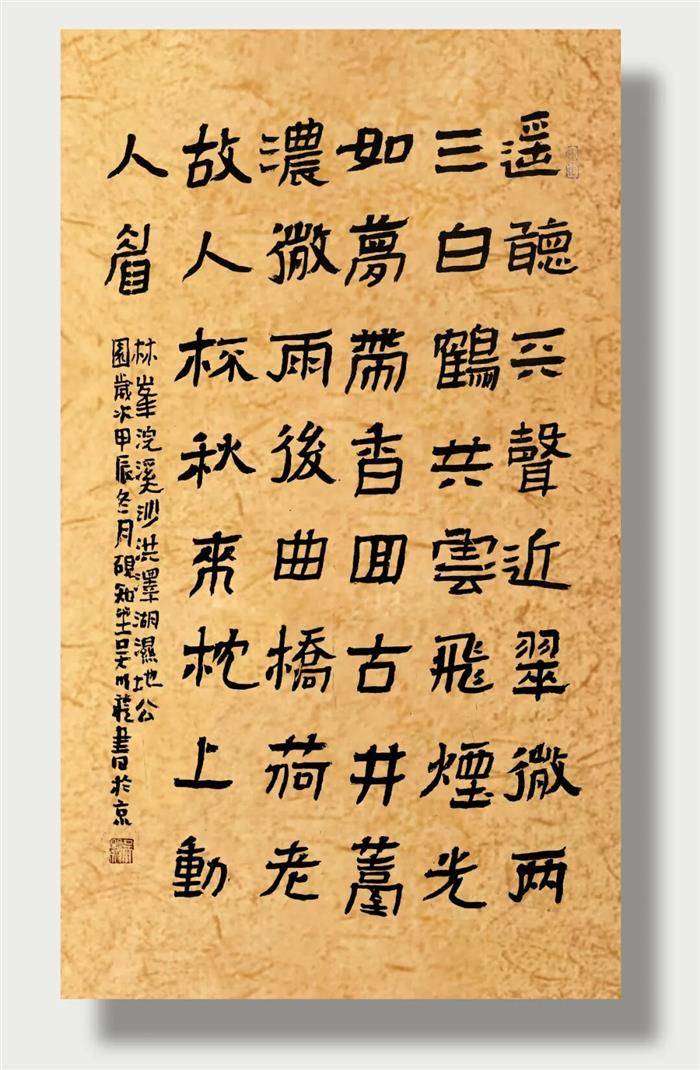 遥聽兵聲近翠微两
三白鶴共雲飛煙光
如夢帶香回古井薹
濃微雨後曲橋荷老
故人杯秋來枕上動
人眉
林峯浣溪沙洪澤湖濕地公
園歲次甲辰冬月硯知堂吴川書於京